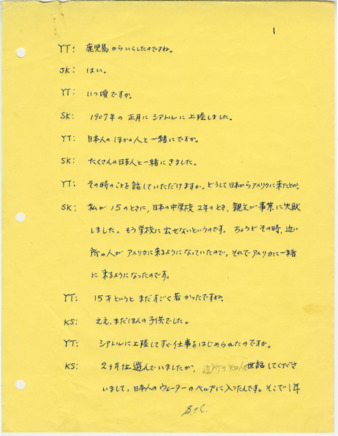 1
YT: 鹿児島からいらしたのですね。
SK: はい。
YT: いつ頃ですか。
SK: 1907年の正月にシアトルに上陸しました。
YT: 日本人のほかの人と一緒にですか。
SK: たくさんの日本人と一緒にきました。
YT: その時のことを話していただけますか。どうして日本からアメリカに来たとか。
SK: 私が15のときに、日本の中学校2年のとき、親父が事業に失敗
しました。もう学校に出せないというのです。ちょうどその時、近い
所の人がアメリカに来るようになっていたので、それでアメリカに一緒
に来るようになったのです。
YT: 15才というとまだすごく若かったですね。
KS: ええ、まだほんの子供でした。
YT: シアトルに上陸してすぐ仕事をはじめられたのですか。
KS: 2ヶ月位遊んでいましたが、世話してくださ
いまして、日本人のウェーターのヘルプに入ったんです。そこで1年